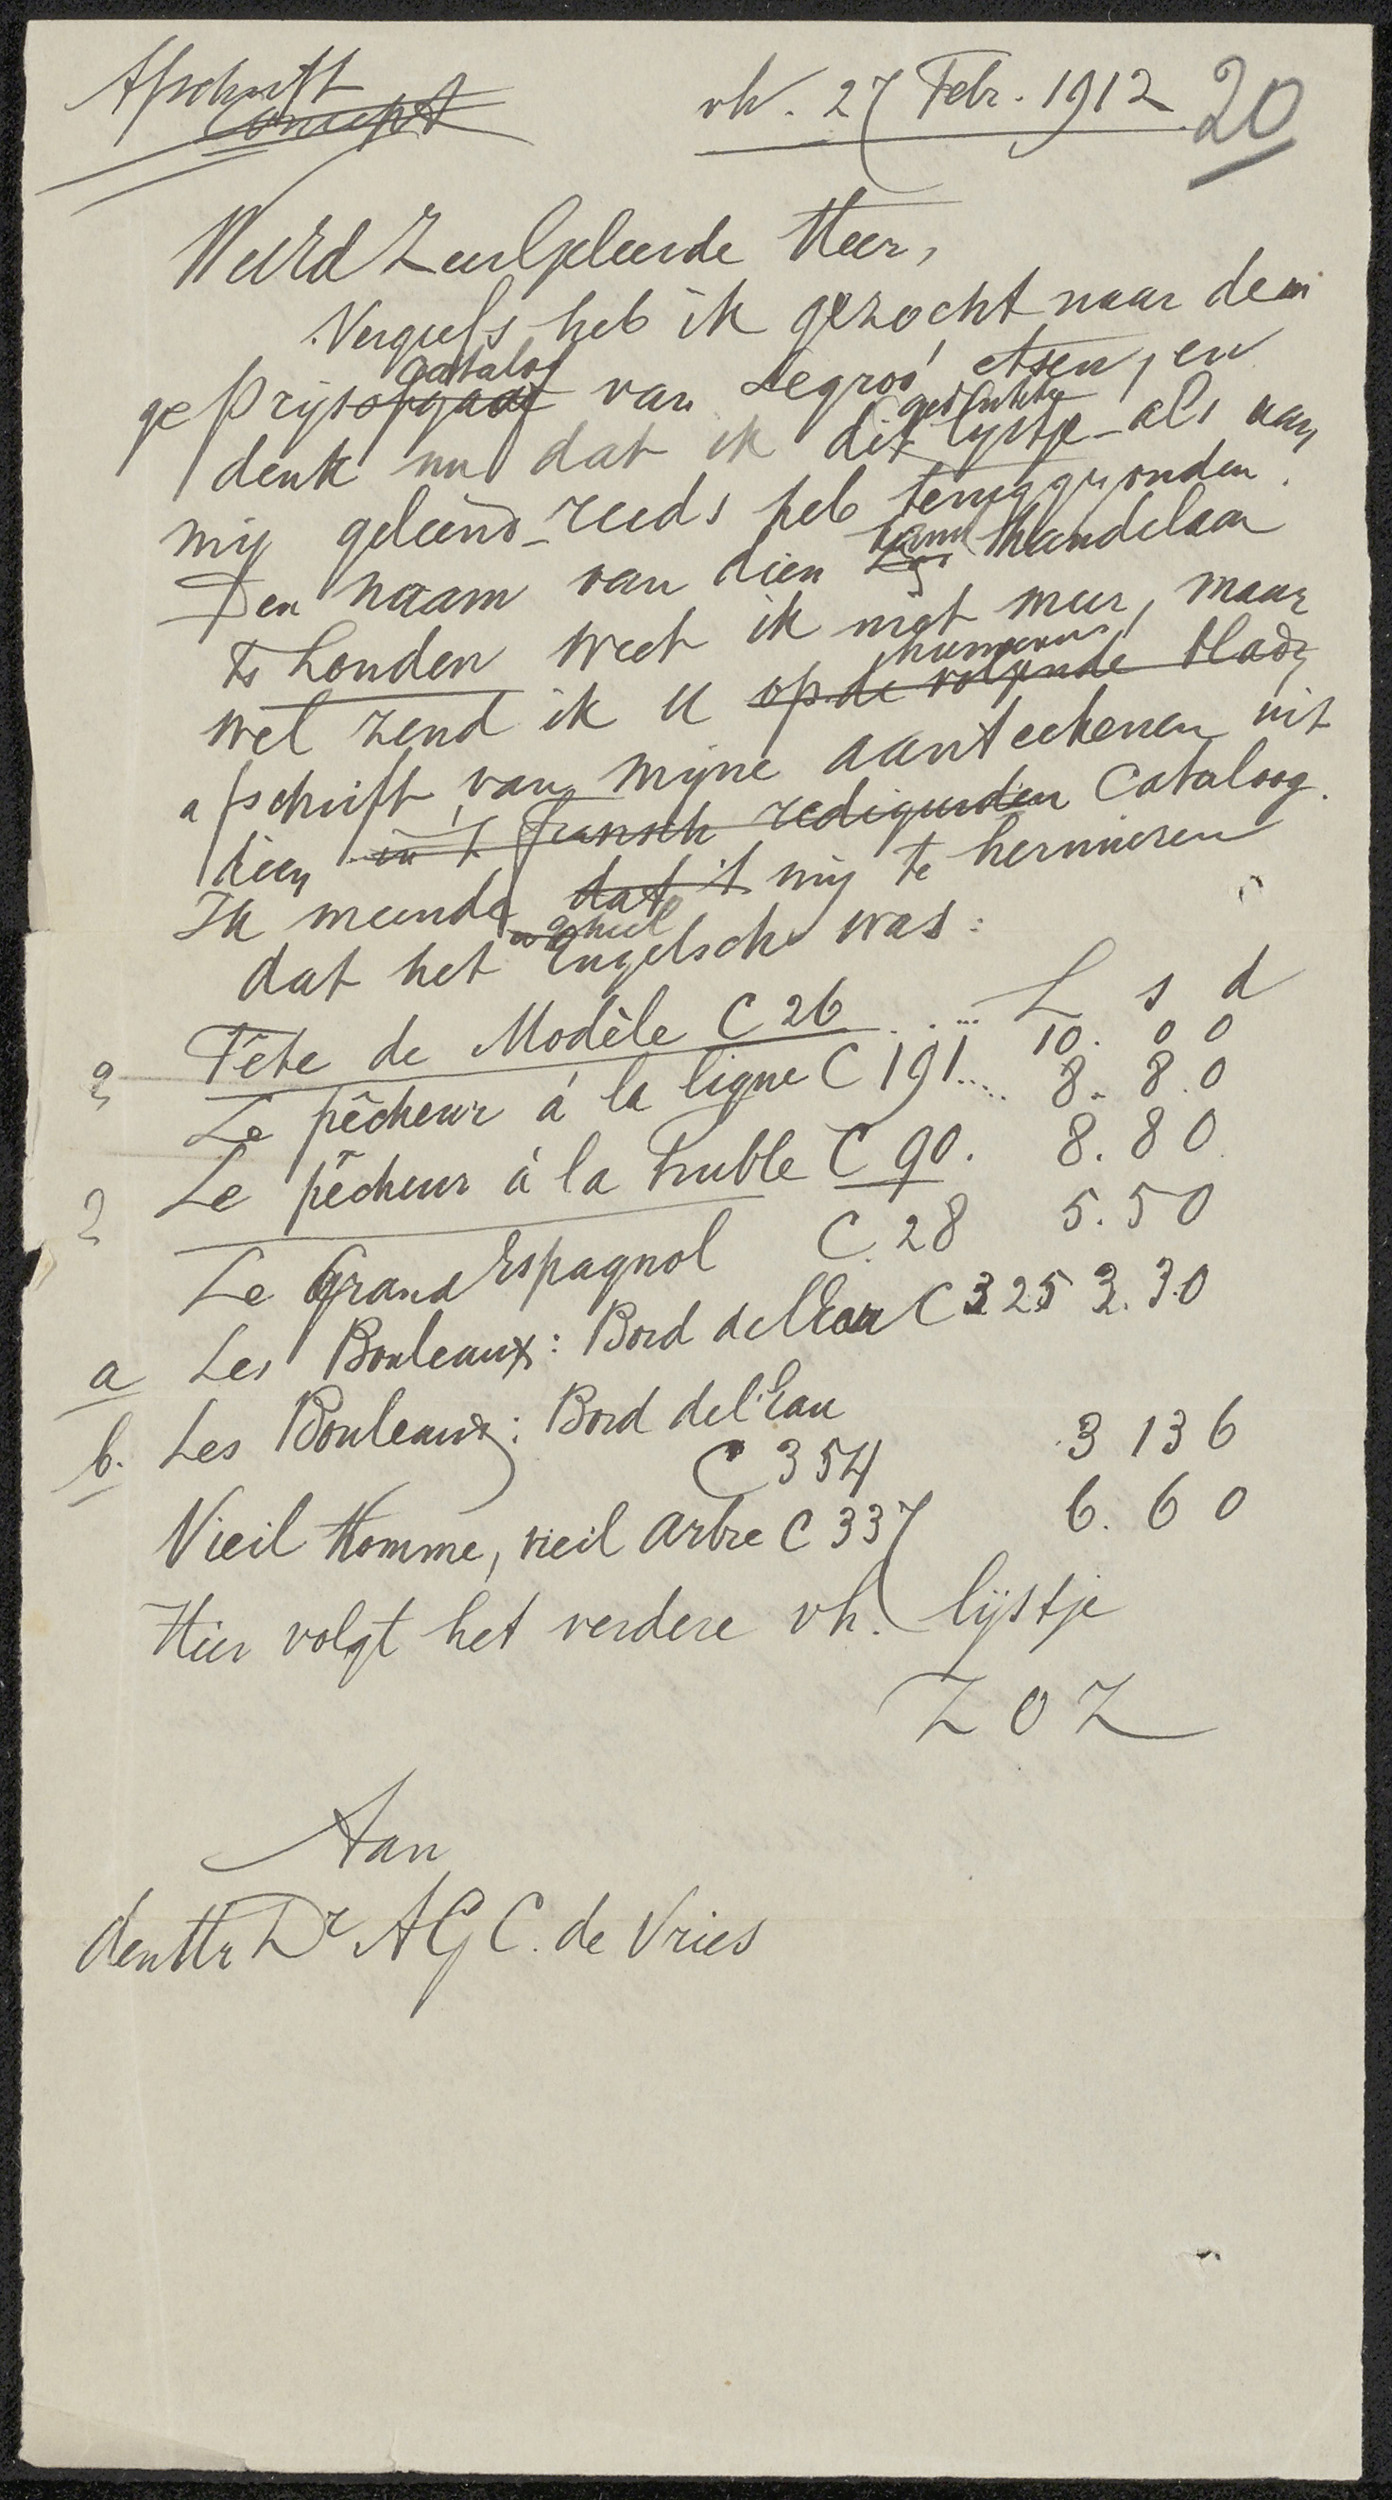 Afschrift
Concept
vh. 27 Febr. 1912 20
WelEd Zeer Geleerde Heer,
Vergeefs heb ik gezocht naar den
catalog
geprijsopgaaf van Legros' etsen, en
gedrukte
denk nu dat ik dit lijstje - als aan
mij geleend - reeds heb teruggezonden.
Den naam van dien handelaar
te Londen weet ik niet meer, maar
hierneven
wel zend ik U op de volgende bladz
afschrift van mijne aanteekenen uit
dien in 't fransch redigeerden Cataloog.
Ik meende dat 't mij te herinneren
geheel
dat het Engelsch was:
L s d
? Tête de Modèle C 26 ..... 10. 0 0
Le pêcheur à la ligne C 191.... 8. 8. 0
Le pêcheur à la truble C 90. 8. 8 0
? Le Grand Espagnol C. 28 5. 5 0
a Les Bouleaux: Bord de l'Eau C 325 3. 3. 0
b. Les Bouleaux: Bord de l'Eau
C 354 3 13 6
Vieil Homme, vieil arbre C 337 6. 6 0
Hier volgt het verdere vh. lijstje
Z O Z
Aan
den Hr Dr A G C. de Vries